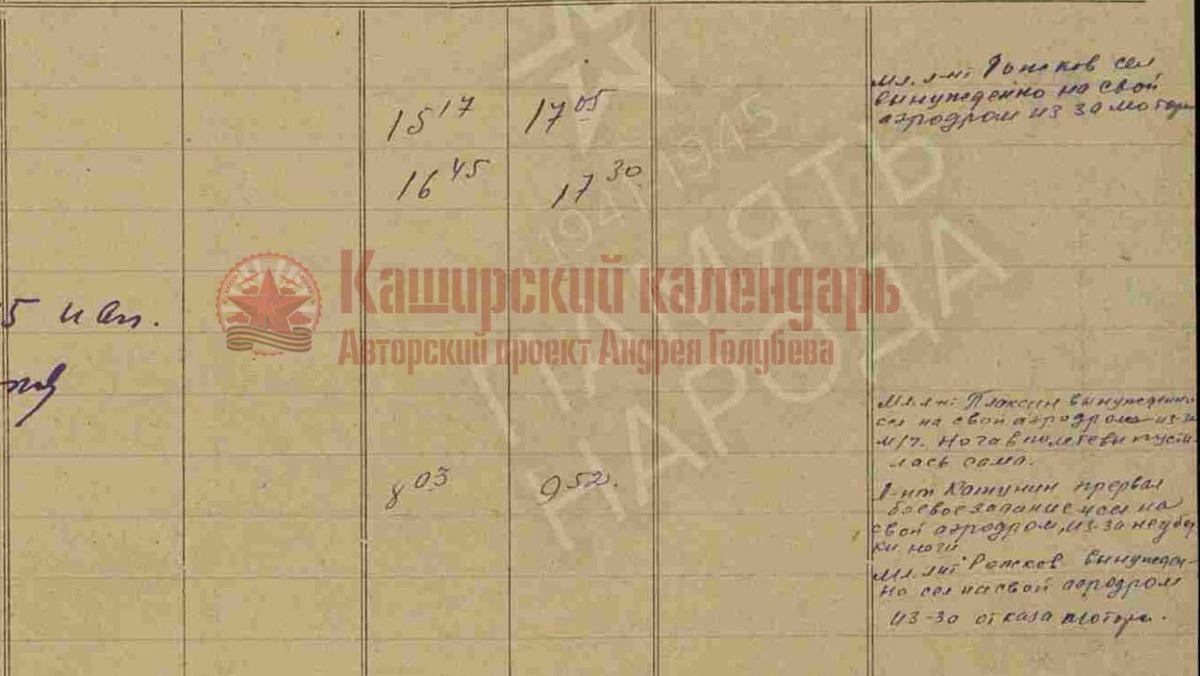 15 17 17 05
мл. л-нт Рожков сел
вынужденно на свой
аэродром из за мотора
16 45 17 30
1941-1945
ПАМЯТЬ
НАРОДА
Каширский календарь
Авторский проект Андрея Голубева
5 иап.
8 03 9 52.
мл. л-нт Плаксин вынужденно
сел на свой аэродром из-за
м/ч. Нога в полете выпусти
лась сама.
л-нт Катунин прервал
боевое задание и сел на
свой аэродром, из-за неубор
ки ноги
мл. лнт Рожков вынужден-
но сел на свой аэродром
из-за отказа мотора.